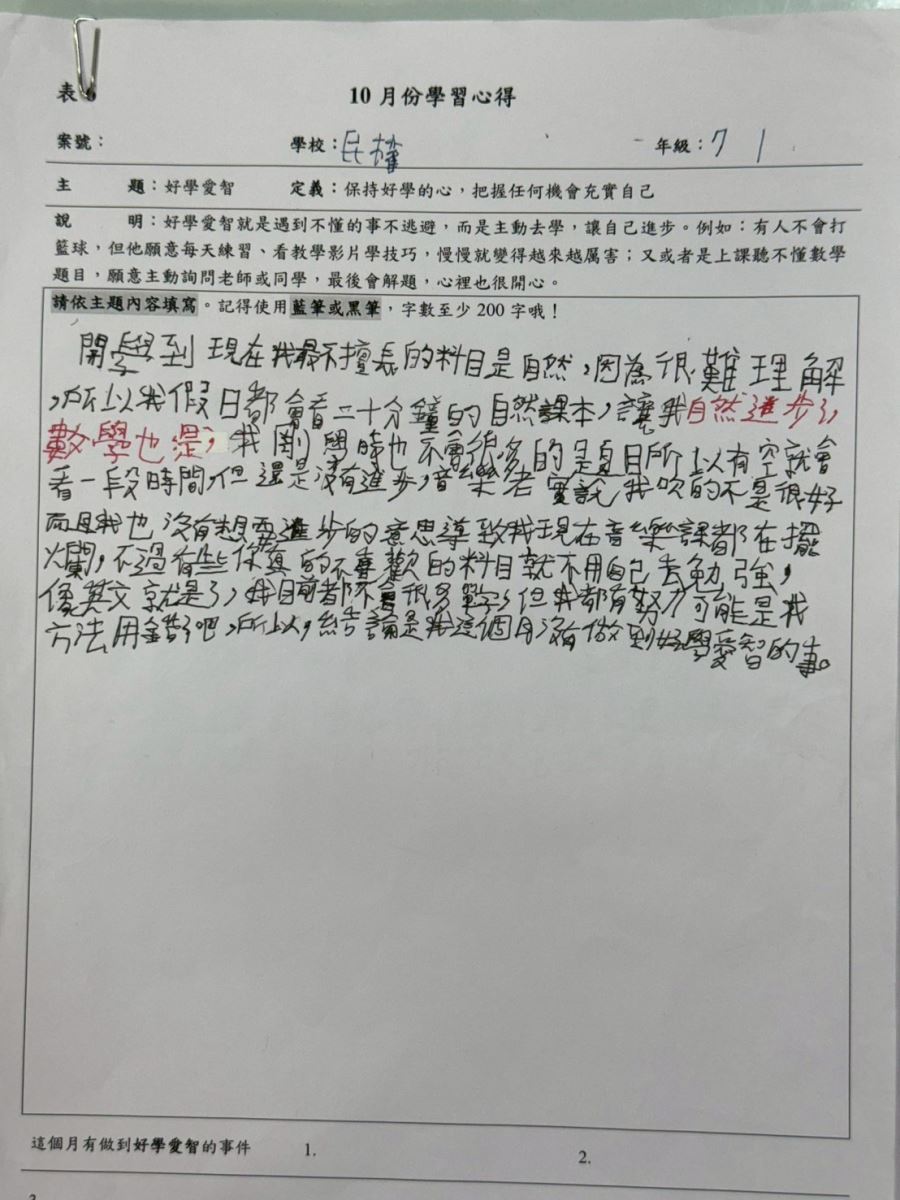 表6
10 月份學習心得
案號： 學校：民權 年級：7 1
主 題：好學愛智 定義：保持好學的心，把握任何機會充實自己
說 明：好學愛智就是遇到不懂的事不逃避，而是主動去學，讓自己進步。例如：有人不會打
籃球，但他願意每天練習、看教學影片學技巧，慢慢就變得越來越厲害；又或者是上課聽不懂數學
題目，願意主動詢問老師或同學，最後會解題，心裡也很開心。
請依主題內容填寫。記得使用藍筆或黑筆，字數至少 200 字哦！
開學到現在我最不擅長的科目是自然，因為很難理解
，所以我假日都會看二十分鐘的自然課本，讓我自然進步了，
數學也是，我剛學時也不會很多的題目所以有空就會
看一段時間，但還是沒有進步，音樂老實說我吹的不是很好
而且我也沒有想要進步的意思導致我現在音樂課都在擺
爛，不過有些你真的不喜歡的科目就不用自己去勉強，
像英文就是了，我目前都不會很多單字，但我都有努力可能是我
方法用錯了吧，所以，結論是我這個月沒有做到好學愛智的事。
這個月有做到好學愛智的事件 1. 2.
3.